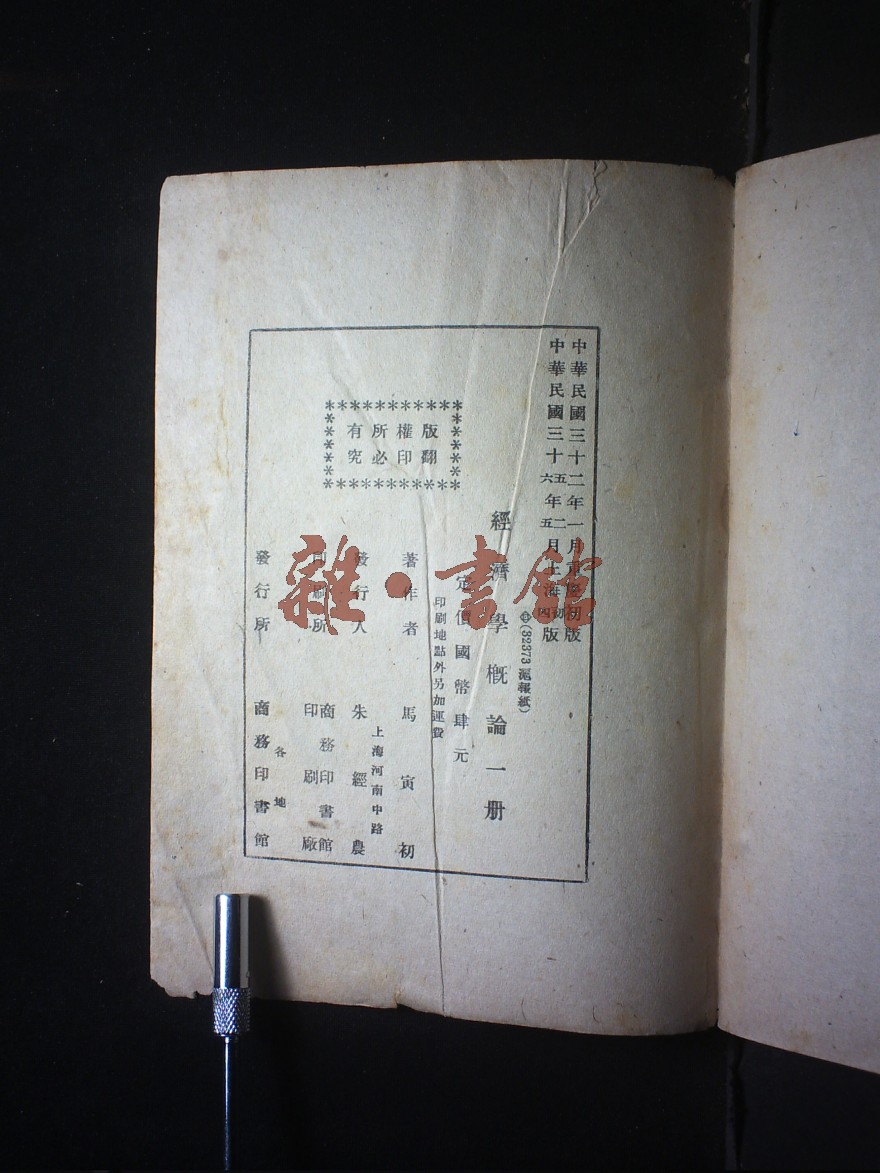 中華民國三十二年一月重慶初版
中華民國三十五年二月上海初版
六五四
㊥(82373滬報紙)
經濟學概論一册
定價國幣肆元
印刷地點外另加運費
版權所有
翻印必究
著作者 馬寅初
發行人 朱經農
上海河南中路
印刷所 商務印書館印刷廠
發行所 各地 商務印書館
雜·書館